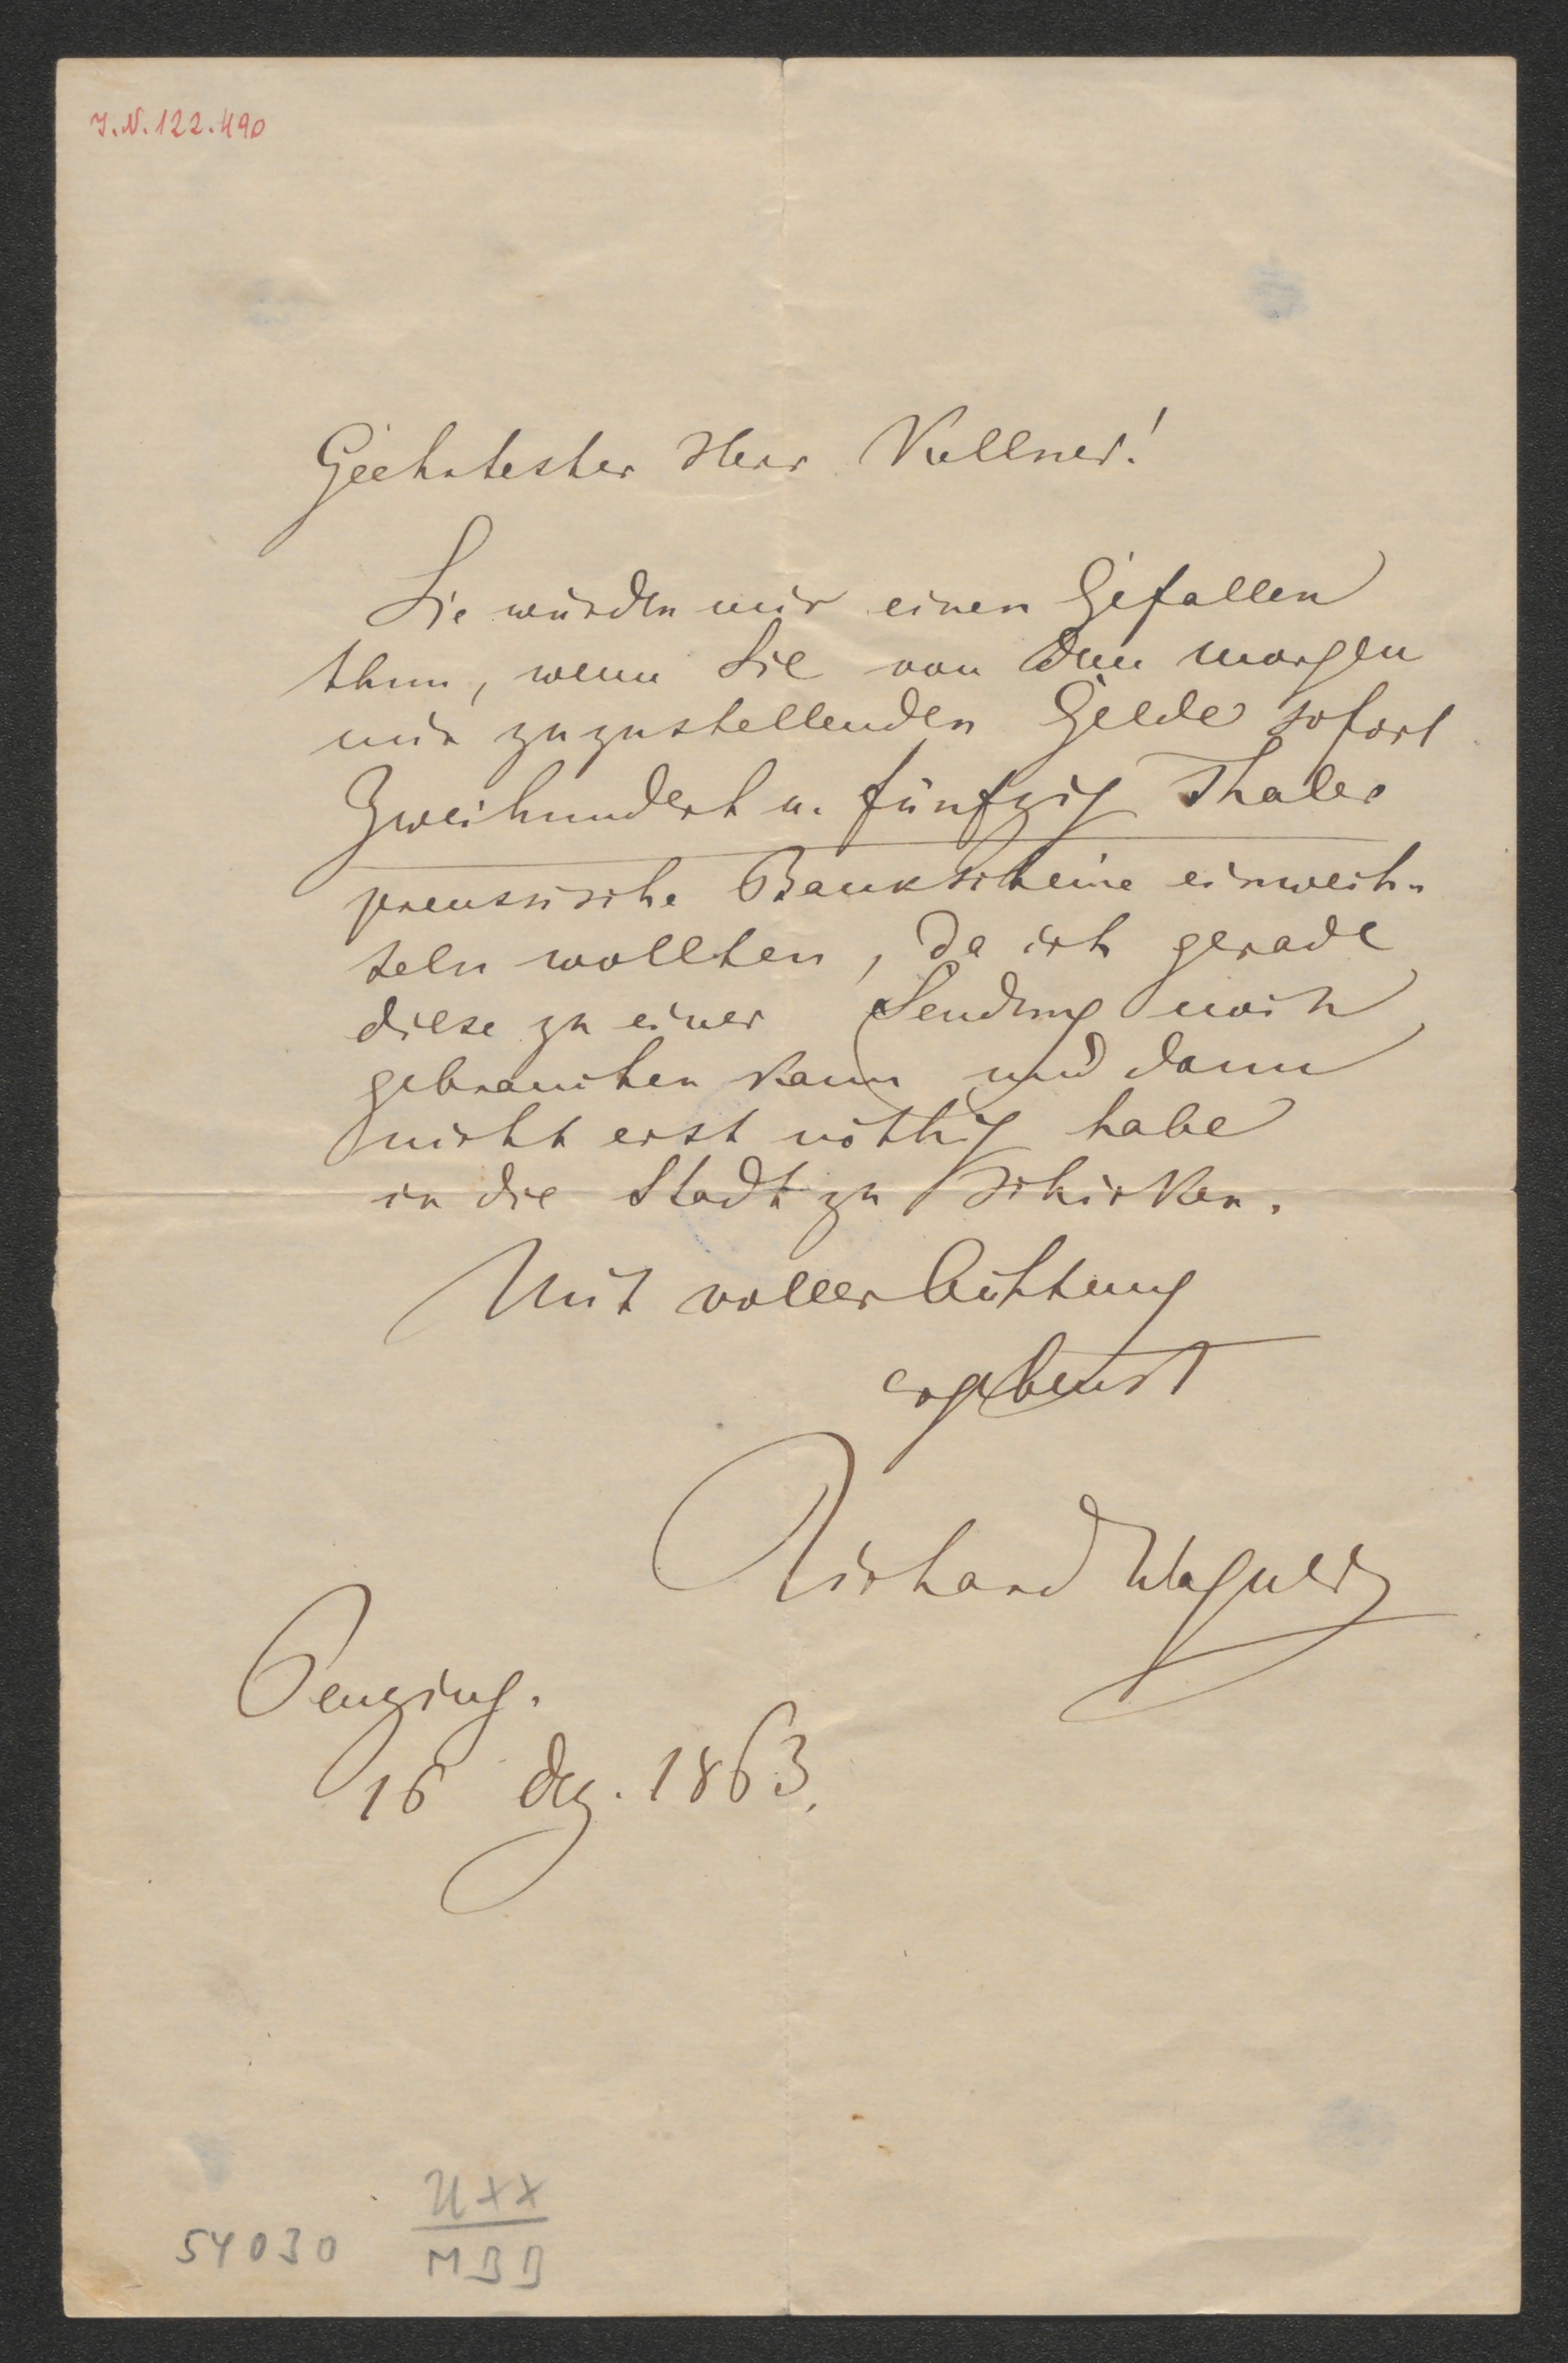 I.N. 122.490
Geehrtester Herr Kullner!
Sie würden mir einen Gefallen
thun, wenn Sie von dem morgen
mir zuzustellenden Gelde sofort
Zweihundert u. fünfzig Thaler
preussische Bankscheine einwech-
seln wollten, da ich gerade
diese zu einer Sendung noch
gebrauchen kann und dann
nicht erst nöthig habe
in die Stadt zu schicken.
Mit voller Achtung
ergebenst
Richard Wagner
Penzing.
16 Dez. 1863.
54030
MBB